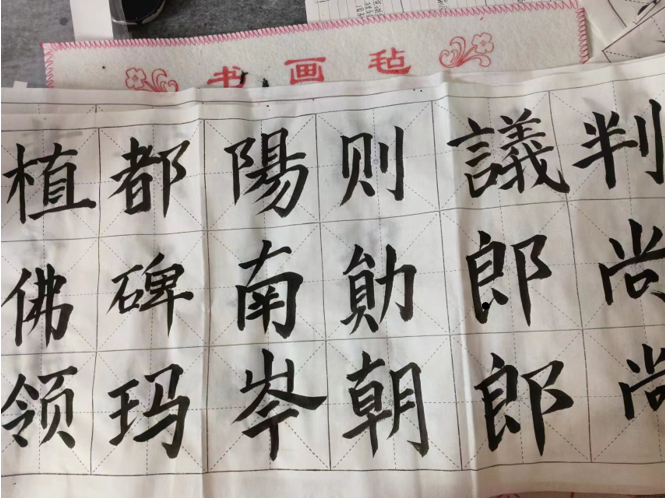 书画毡
植都陽则議判
佛碑南勛郎尚
领玛岑朝郎尚